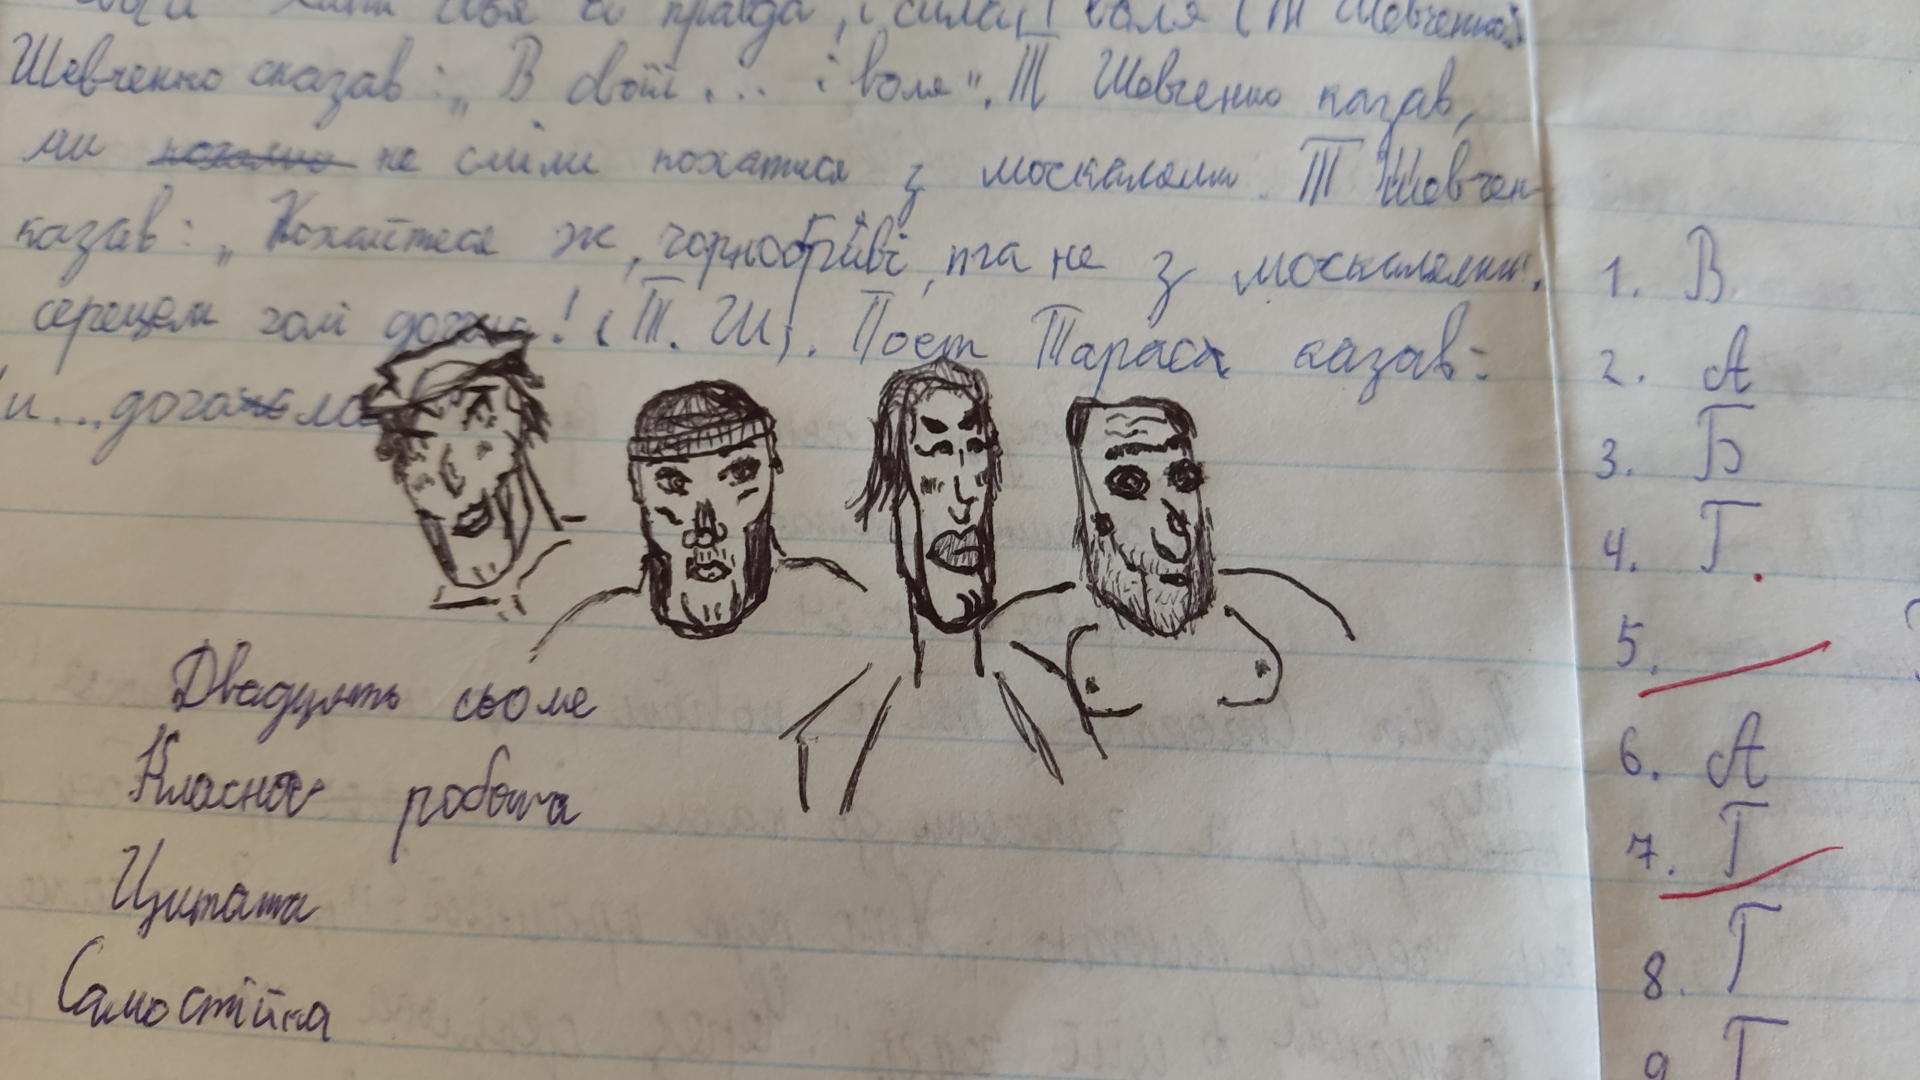 хаті своя й правда, і сила, і воля (Т Шевченко).
Шевченко сказав: „В своїй ... і воля". Т Шевченко казав,
ми не сміли кохатися з москалями. Т Шевчен-
казав: „Кохайтеся ж, чорнобриві, та не з москалями".
серецем голі догола! (Т. Ш). Поет Тарас казав:
и...догола
Двадцять сьоме
Класноє робота
Цитата
Самостійна
1. В
2. А
3. Б
4. Г
5.
6. А
7. Г
8. Г
9. Г